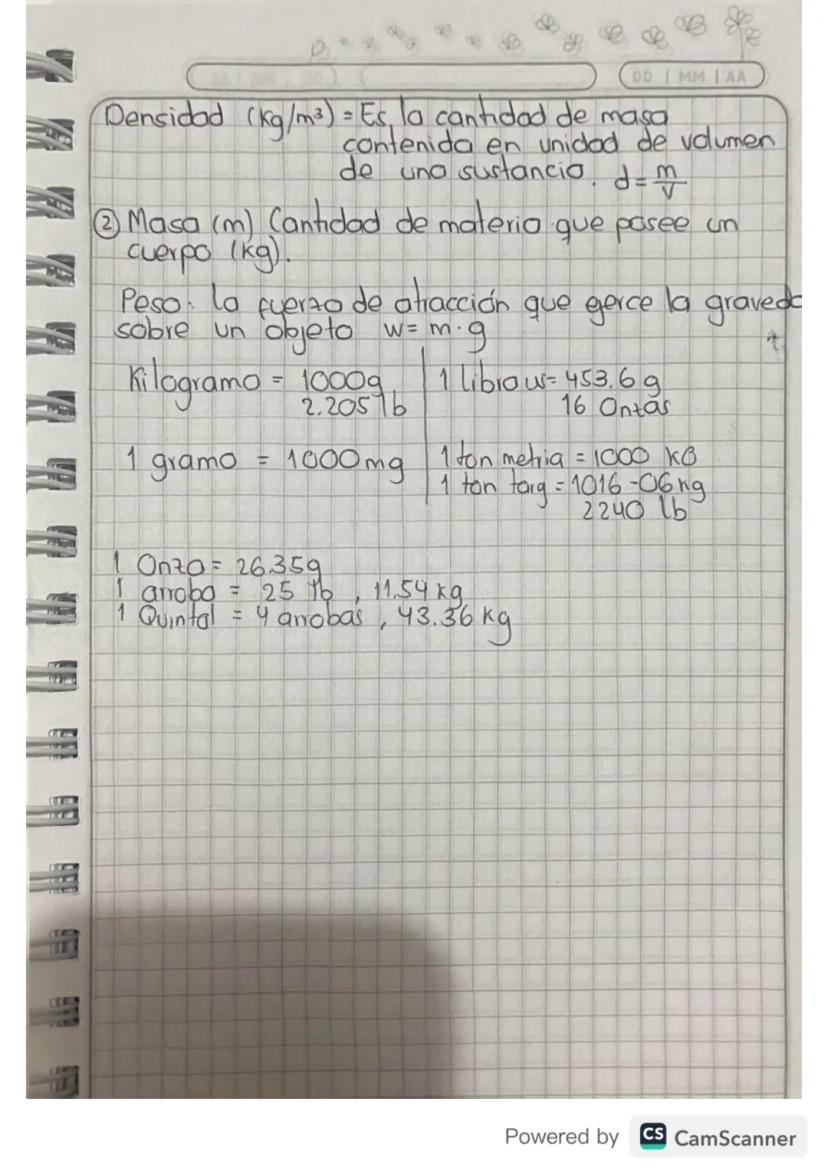 DD | MM | AA
Densidad (kg/m³) = Es la cantidad de masa
contenida en unidad de volumen
de una sustancia. d = m/v
② Masa (m) Cantidad de materia que posee un
cuerpo (kg).
Peso: la fuerza de atracción que gerce la graved
sobre un objeto w = m · g
Kilogramo = 1000g
2.205 lb
1 gramo = 1000mg
1 libra = 453.6 g
16 Onzas
1 ton metria = 1000 kg
1 ton = 1016-06 kg
2240 lb
1 Onza = 26.35g
1 arroba = 25 lb, 11.54 kg
1 Quintal = 4 arrobas, 43.36 kg
Powered by CS CamScanner